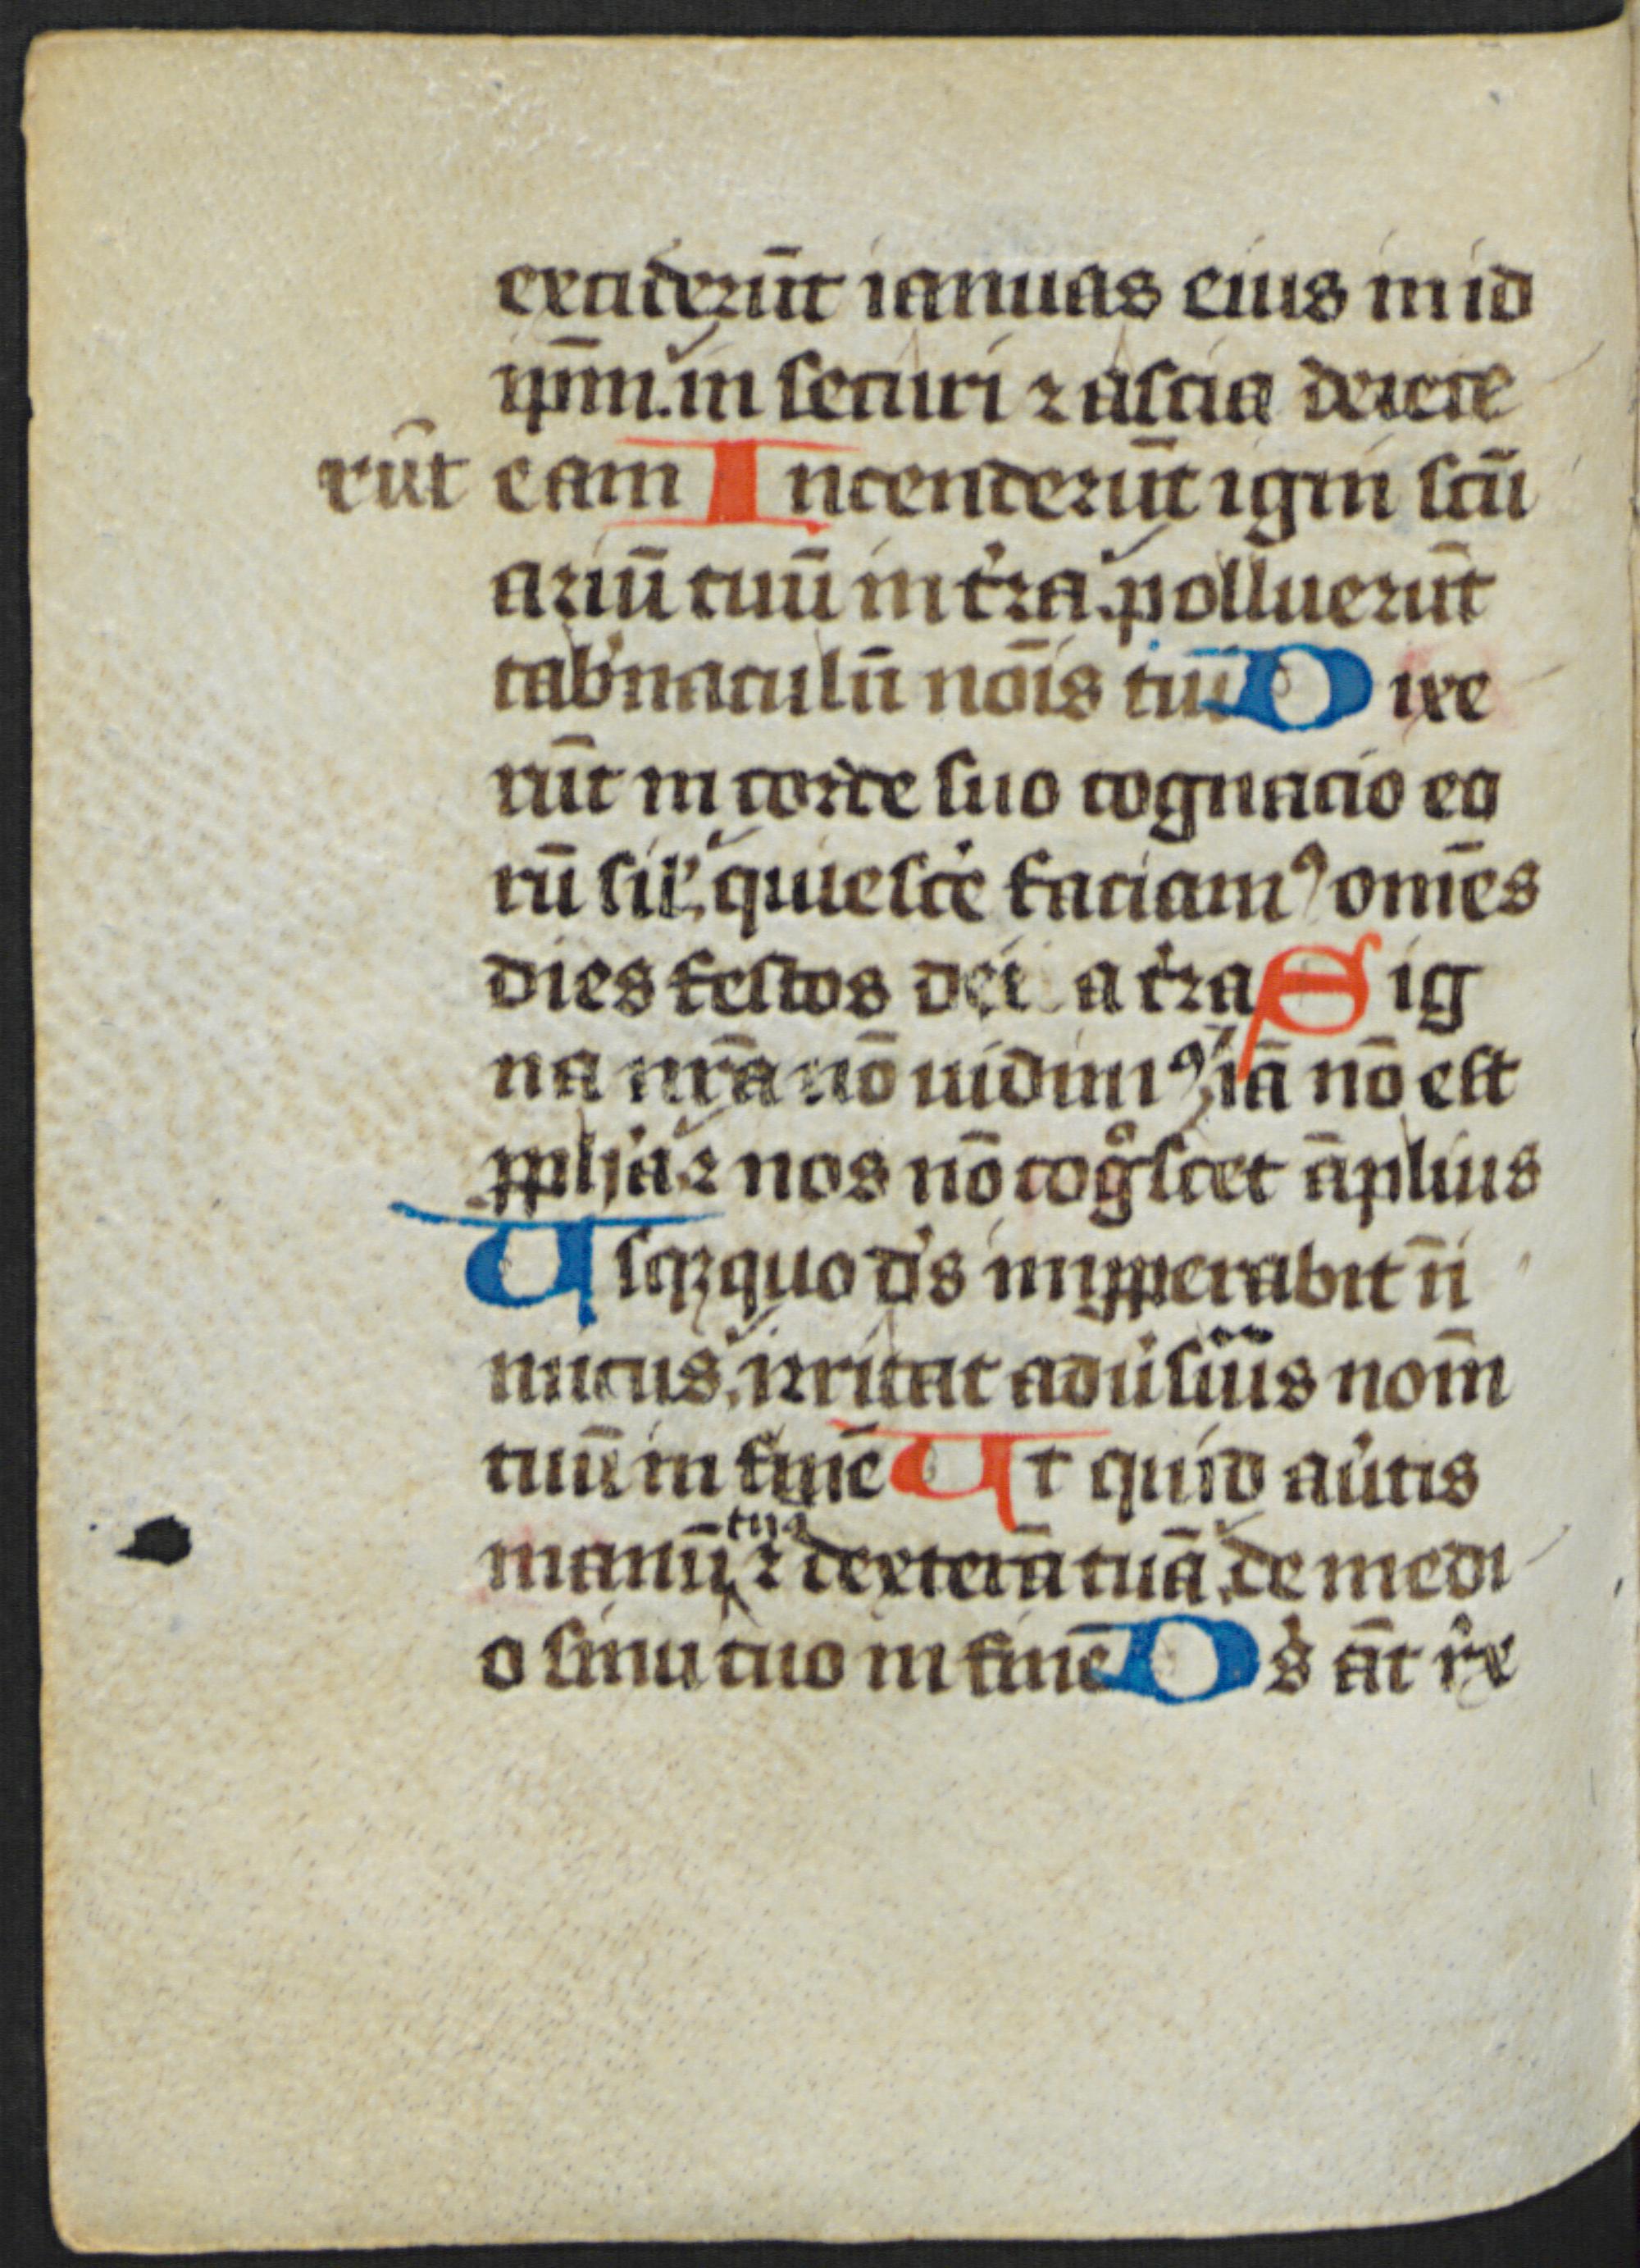 exciderūt ianuas eius in id
ip̄m. in securi ⁊ ascia deiece
rūt eam Incenderūt igni scū
ariū tuū in t̓ra. polluerūt
tab̓naculū nōis tui Dixe
rūt in corde suo cognacio eo
rū sil̓, quiesce̓ faciamꝰ om̄es
dies festos dei a t̓ra Sig
na nr̄a nō uidimꝰ, iā nō est
ppha ⁊ nos nō cogͦscet āplius
Usqꝫ quo ds̓ impperabit īi
micus, irritat adūsiīs nom̄
tuū in finē Ut quid au̓tis
manū tuā ⁊ dexterā tuā, de medi
o sinu tuo in finē Ds̓ āt rex